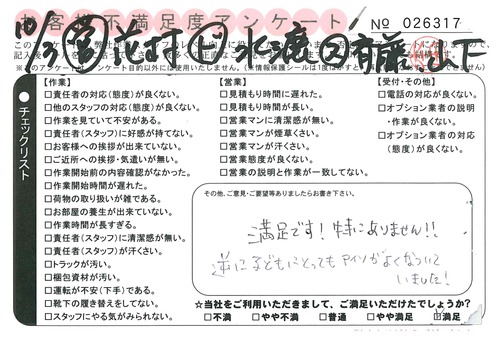 お客様不満足度アンケート
№ 026317
10/3
チェックリスト
【作業】
□責任者の対応(態度)が良くない。
□他のスタッフの対応(態度)が良くない。
□作業を見ていて不安がある。
□責任者(スタッフ)に好感が持てない。
□お客様への挨拶が出来ていない。
□ご近所への挨拶・気遣いが無い。
□作業開始前の内容確認がなかった。
□作業開始時間が遅れた。
□荷物の取り扱いが雑である。
□お部屋の養生が出来ていない。
□作業時間が長すぎる。
□責任者(スタッフ)に清潔感が無い。
□責任者(スタッフ)が汗くさい。
□トラックが汚い。
□梱包資材が汚い。
□運転が不安(下手)である。
□靴下の履き替えをしてない。
□スタッフにやる気がみられない。
【営業】
□見積もり時間に遅れた。
□見積もり時間が長い。
□営業マンに清潔感が無い。
□営業マンが煙草くさい。
□営業マンが汗くさい。
□営業態度が良くない。
□営業の説明と作業が一致してない。
【受付・その他】
□電話の対応が良くない。
□オプション業者の説明
・作業が良くない。
□オプション業者の対応
(態度)が良くない。
その他、ご意見・ご要望等ありましたらお書き下さい。
満足です！特にありません!!
逆に子どもにとっても アイソがよくなついて
いました！
☆当社をご利用いただきまして、ご満足いただけたでしょうか？
□不満 □やや不満 □普通 □やや満足 ☑満足